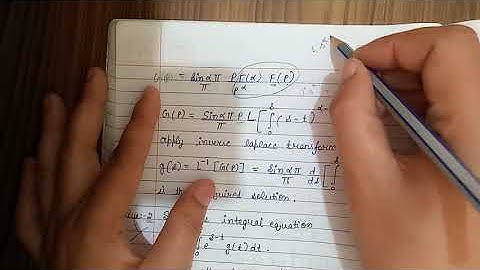 = sin απ/π p Γ(α)/p^α F(p)
G(p) = Sin απ/π p L [ ∫₀ˢ (s-t)^α-
apply inverse laplace transform
g(s) = L⁻¹ [G(p)] = sin απ/π d/ds [ ∫₀ˢ
is the required solution.
integral equation
∫₀ e^s-t g(t) dt.